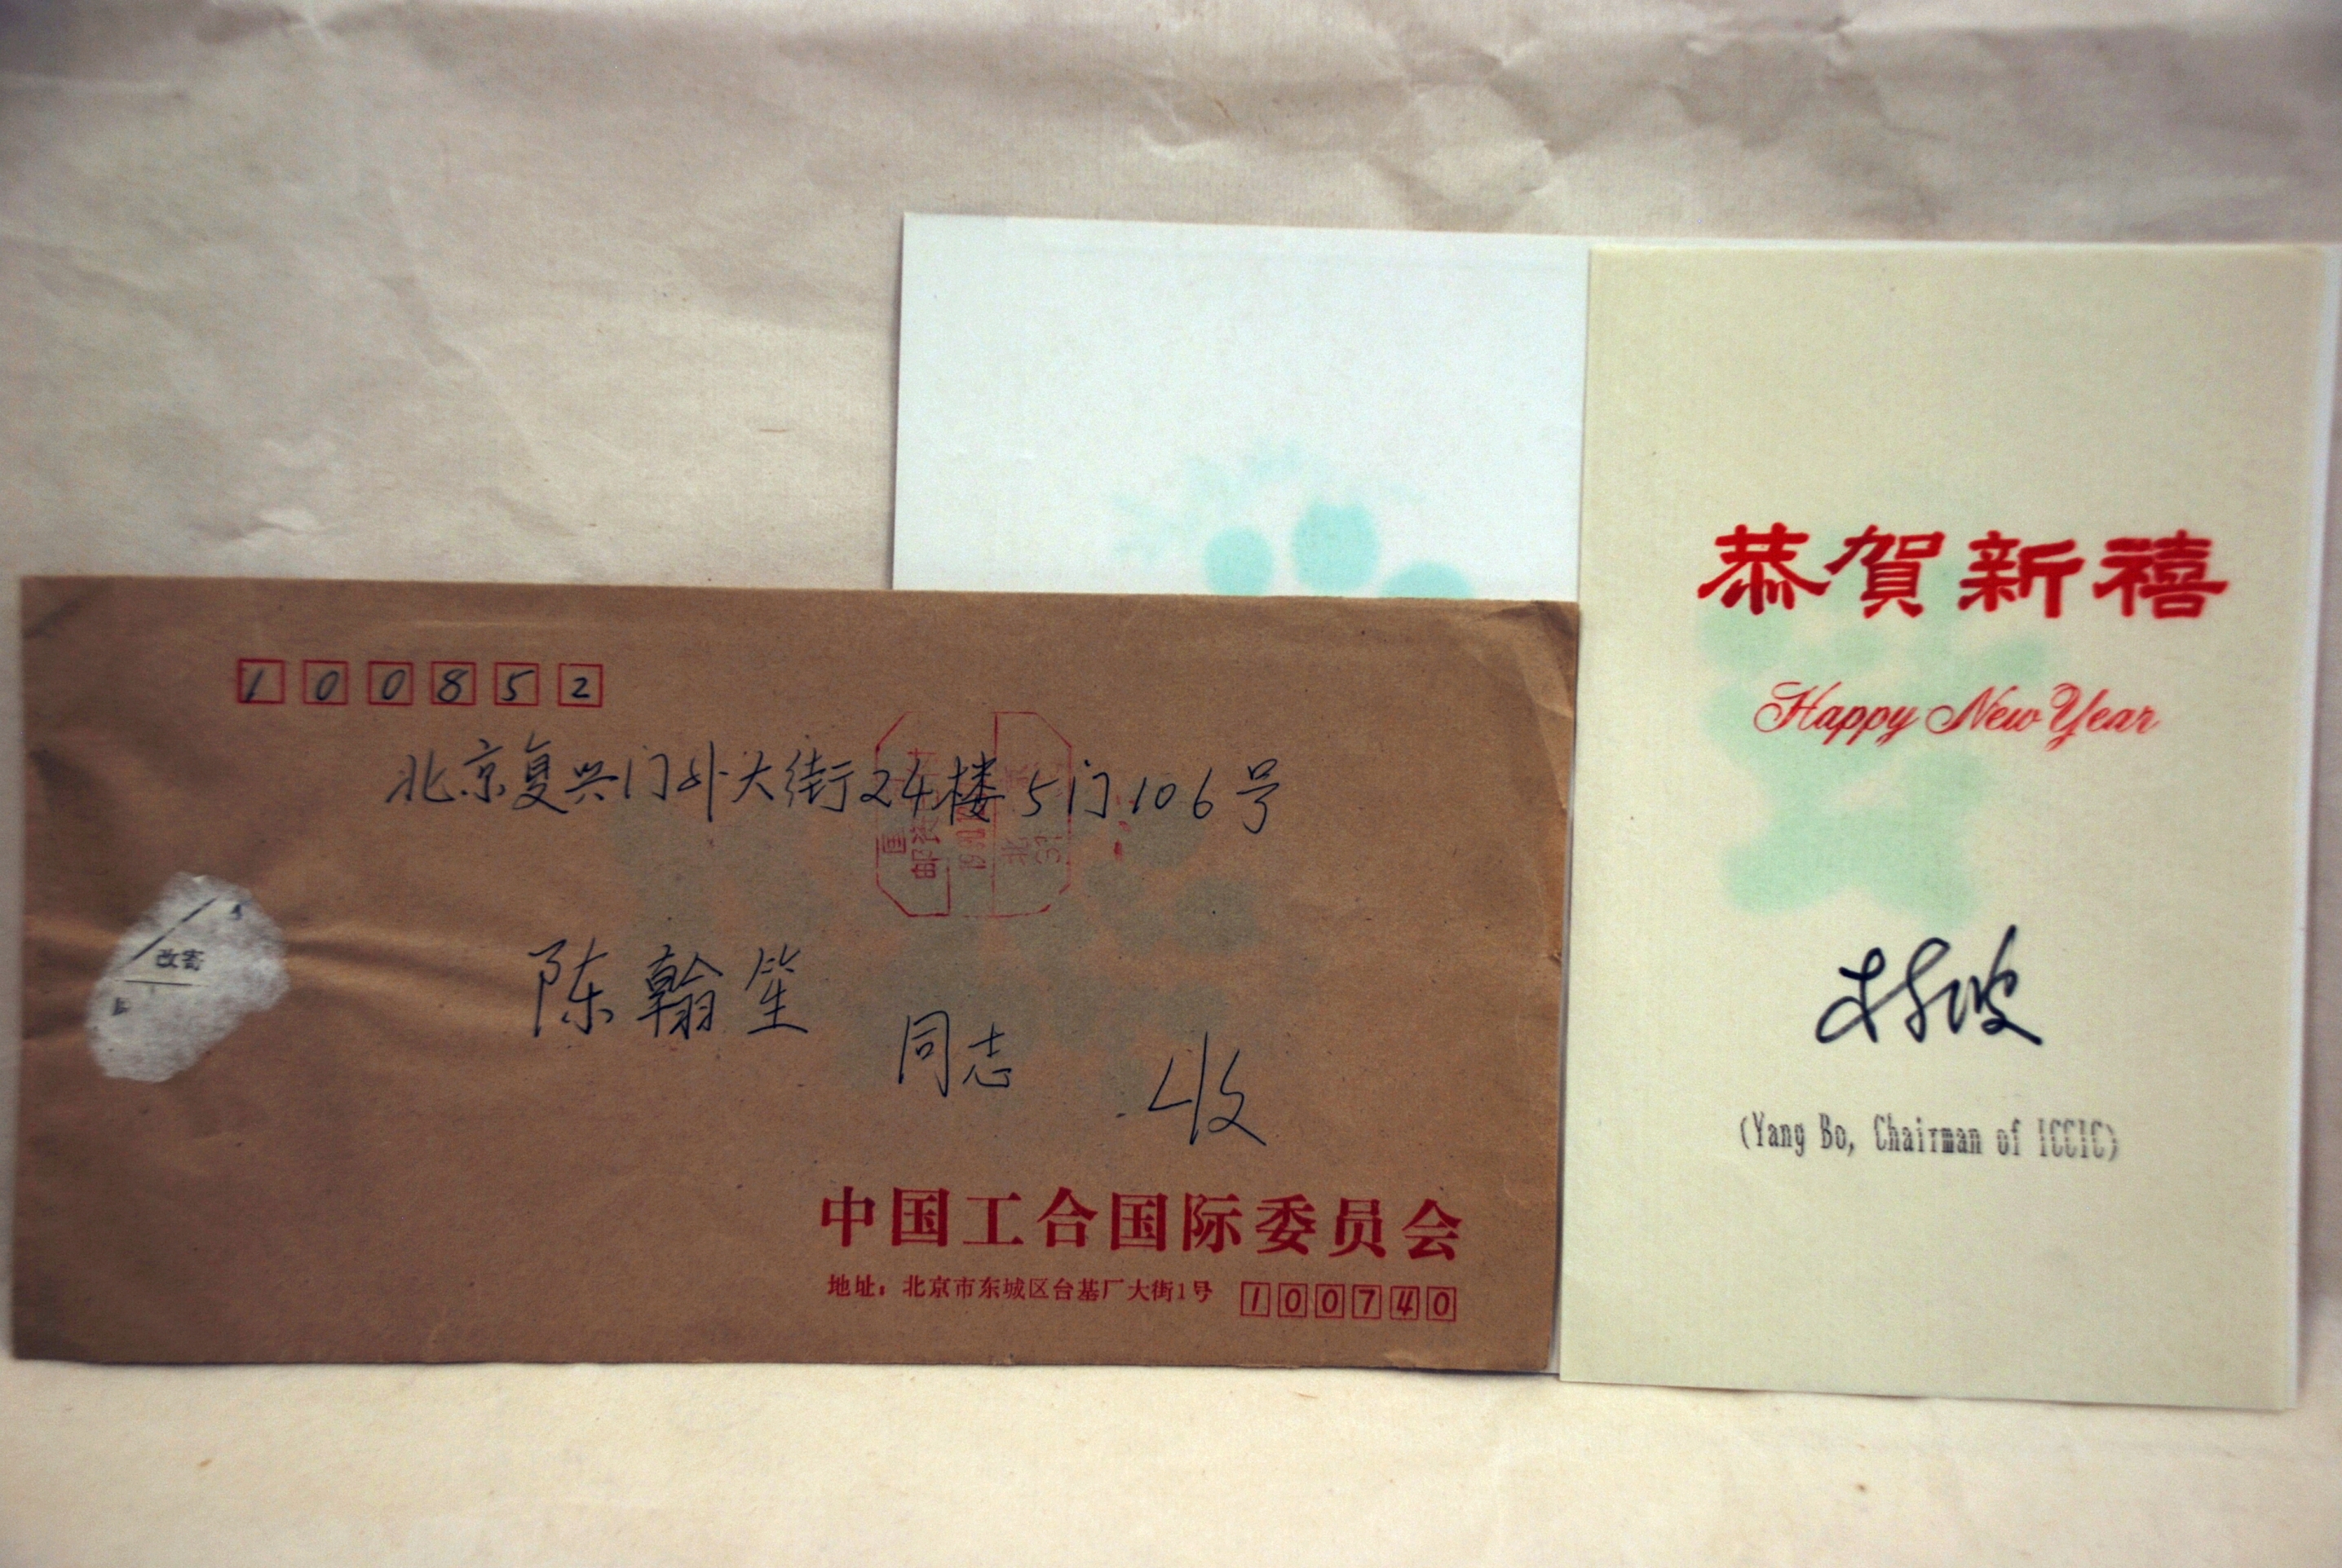 100852
北京复兴门外大街24楼5门106号
陈翰笙
同志 收
改寄
中国工合国际委员会
地址：北京市东城区台基厂大街1号 100740
恭賀新禧
Happy New Year
杨波
(Yang Bo, Chairman of ICCIC)